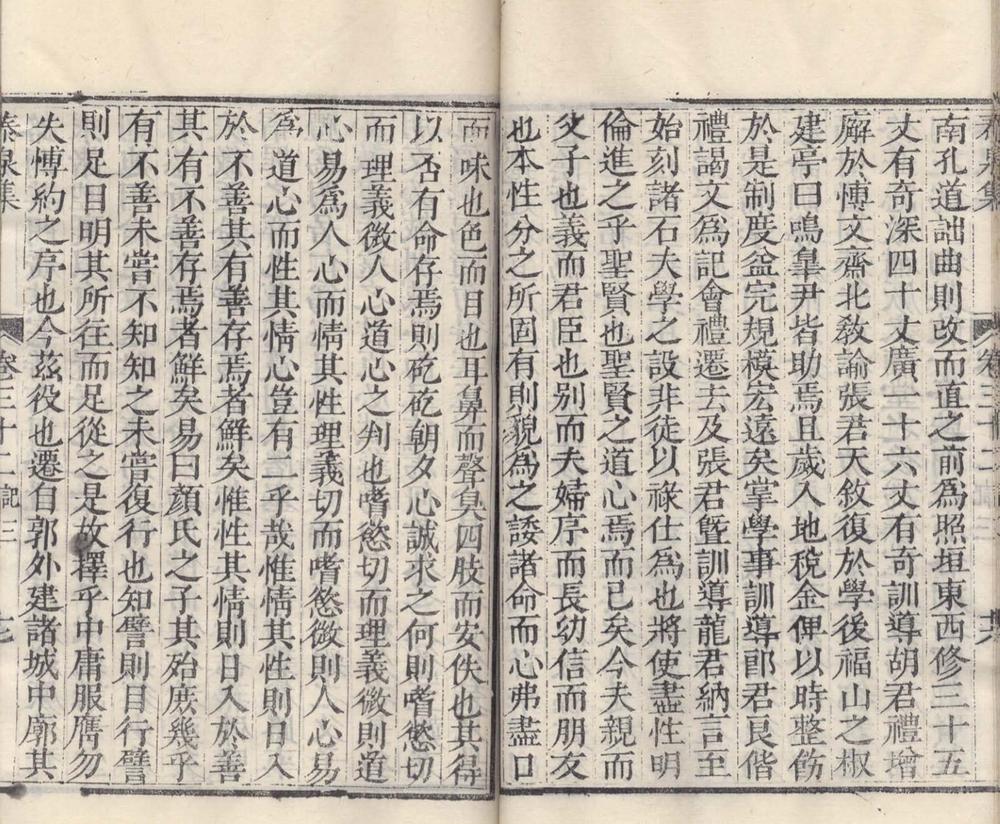 泰泉集
卷三十二 記三
南孔道詘曲則改而直之前爲照垣東西修三十五
丈有奇深四十丈廣一十六丈有奇訓導胡君禮增
廨於愽文齋北敎諭張君天敘復於學後福山之椒
建亭曰鳴臯尹皆助焉且歲入地税金俾以時整飭
於是制度益完規模宏遠矣掌學事訓導郎君良偕
禮謁文爲記會禮遷去及張君曁訓導龍君納言至
始刻諸石夫學之設非徒以祿仕爲也將使盡性明
倫進之乎聖賢也聖賢之道心焉而已矣今夫親而
父子也義而君臣也别而夫婦序而長幼信而朋友
也本性分之所固有則貌爲之諉諸命而心弗盡口
而味也色而目也耳鼻而聲臭四肢而安佚也其得
以否有命存焉則矻矻朝夕心誠求之何則嗜慾切
而理義微人心道心之判也嗜慾切而理義微則道
心易爲人心而情其性理義切而嗜慾微則人心易
爲道心而性其情心豈有二乎哉惟情其性則日入
於不善其有善存焉者鮮矣惟性其情則日入於善
其有不善存焉者鮮矣易曰顔氏之子其殆庶幾乎
有不善未嘗不知知之未嘗復行也知譬則目行譬
則足目明其所往而足從之是故釋乎中庸服膺勿
失愽約之序也今茲役也遷自郭外建諸城中廓其
泰泉集
卷三十二 記三